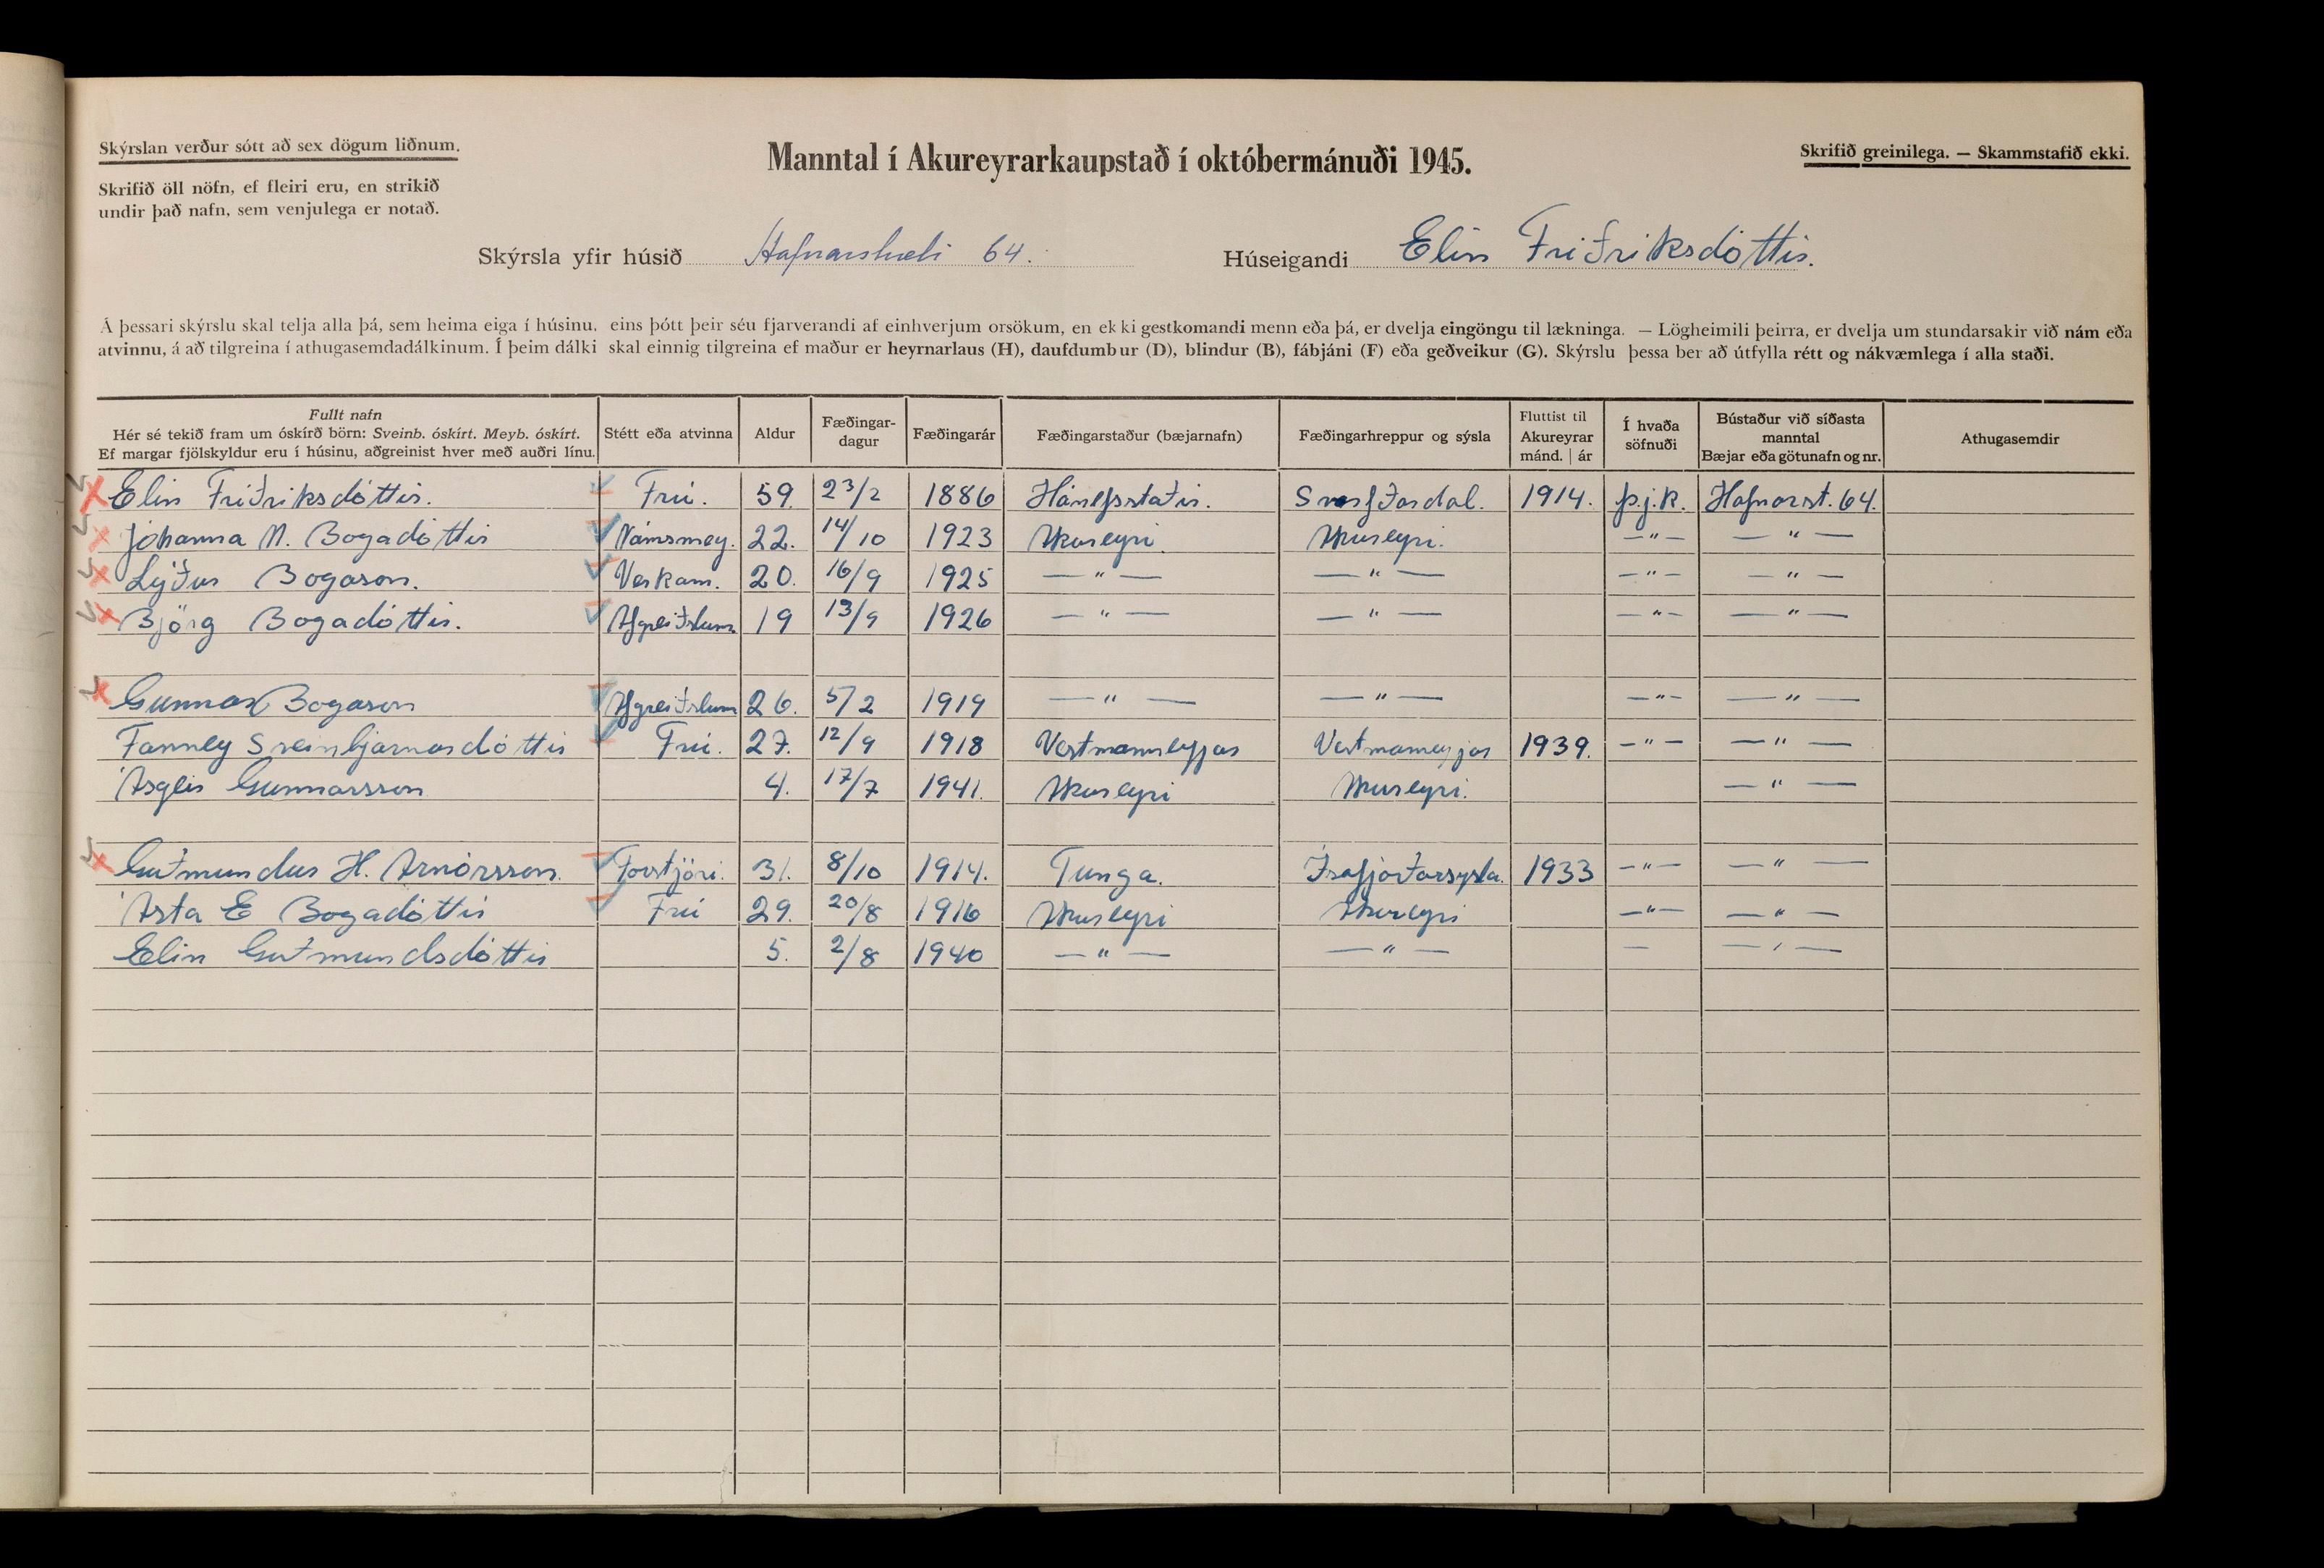 Skýrslan verður sótt að sex dögum liðnum.
Skrifið öll nöfn, ef fleiri eru, en strikið
undir það nafn, sem venjulega er notað.
Manntal í Akureyrarkaupstað í októbermánuði 1945.
Skrifið greinilega. — Skammstafið ekki.
Skýrsla yfir húsið Hafnarstræti 64. Húseigandi Elín Friðriksdóttir.
Á þessari skýrslu skal telja alla þá, sem heima eiga í húsinu, eins þótt þeir séu fjarverandi af einhverjum orsökum, en ekki gestkomandi menn eða þá, er dvelja eingöngu til lækninga. — Lögheimili þeirra, er dvelja um stundarsakir við nám eða
atvinnu, á að tilgreina í athugasemdadálkinum. Í þeim dálki skal einnig tilgreina ef maður er heyrnarlaus (H), daufdumbur (D), blindur (B), fábjáni (F) eða geðveikur (G). Skýrslu þessa ber að útfylla rétt og nákvæmlega í alla staði.
Fullt nafn
Hér sé tekið fram um óskírð börn: Sveinb. óskírt. Meyb. óskírt.
Ef margar fjölskyldur eru í húsinu, aðgreinist hver með auðri línu.
Stétt eða atvinna
Aldur
Fæðingar-
dagur
Fæðingarár
Fæðingarstaður (bæjarnafn)
Fæðingarhreppur og sýsla
Fluttist til
Akureyrar
mánd. | ár
Í hvaða
söfnuði
Bústaður við síðasta
manntal
Bæjar eða götunafn og nr.
Athugasemdir
Elín Friðriksdóttir. Frú. 59. 23/2 1886 Hánefsstaðir. Svarfðardal. 1914. þ.j.k. Hafnarst. 64.
Jóhanna M. Bogadóttir Námsmey. 22. 14/10 1923 Akureyri. Akureyri. — " — — " —
Lýður Bogason. Verkam. 20. 16/9 1925 — " — — " — — " — — " —
Björg Bogadóttir. Afgreiðslum. 19 13/9 1926 — " — — " — — " — — " —
Gunnar Bogason Afgreiðslum 26. 5/2 1919 — " — — " — — " — — " —
Fanney Sveinbjarnardóttir Frú. 27. 12/9 1918 Vestmannaeyjar Vestmanneyjar 1939. — " — — " —
Ásgeir Gunnarsson 4. 17/7 1941. Akureyri Akureyri. — " —
Guðmundur H. Arnórsson. Forstjóri. 31. 8/10 1914. Tunga. Ísafjorðarsysla. 1933 — " — — " —
Ásta E Bogadóttir Frú 29. 20/8 1916 Akureyri Akureyri — " — — " —
Elín Guðmundsdóttir 5. 2/8 1940 — " — — " — — — ' —